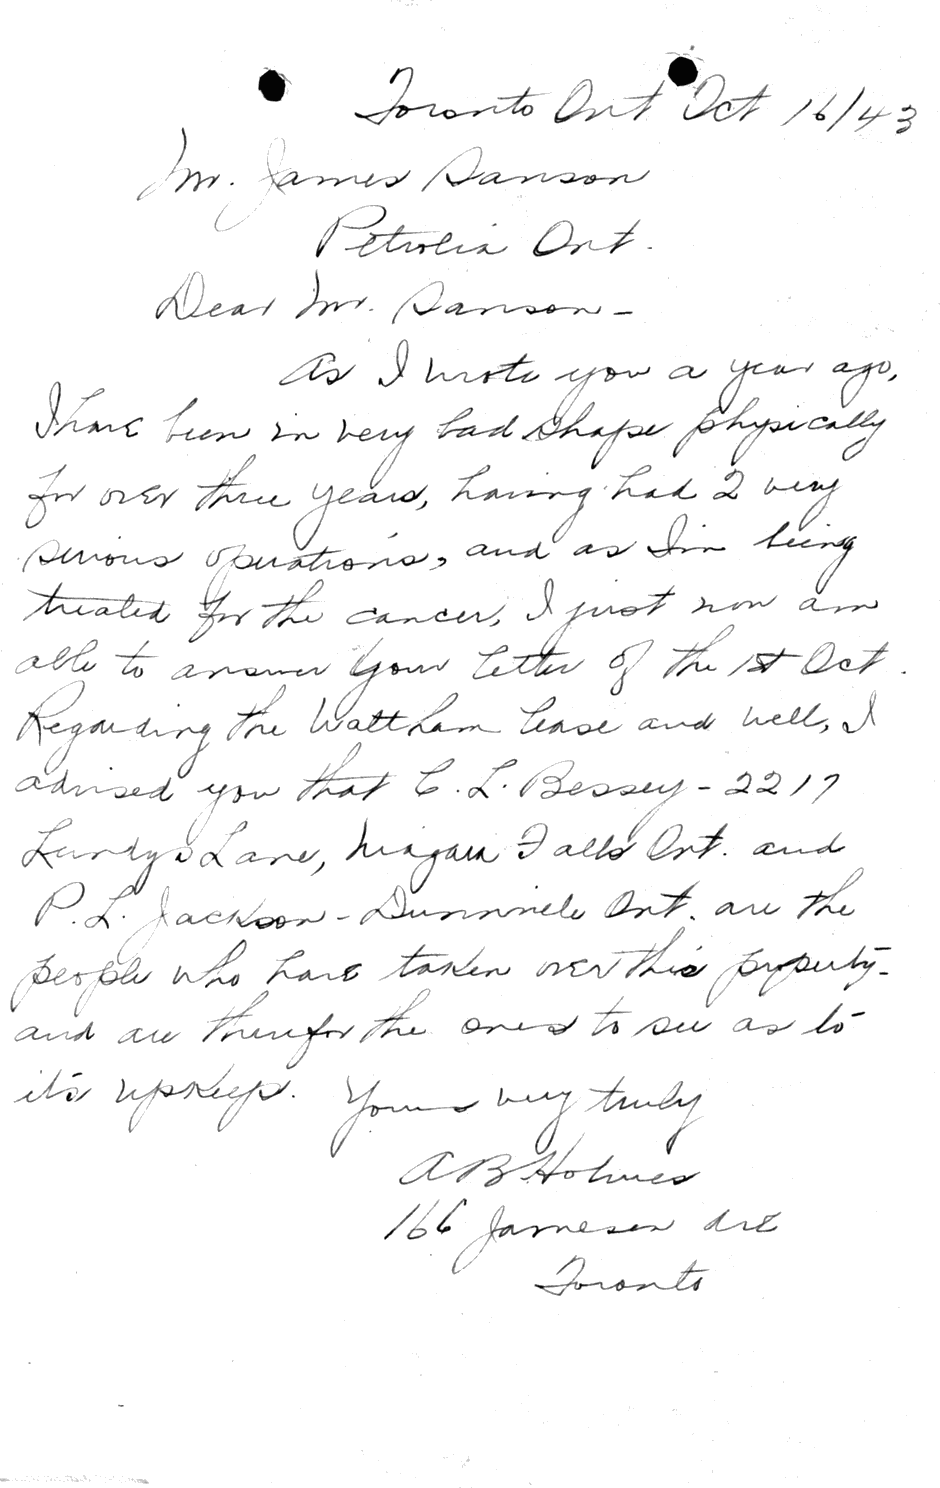 Toronto Ont Oct 16/43
Mr. James Sanson
Petrolia Ont.
Dear Mr. Sanson -
As I wrote you a year ago,
I have been in very bad shape physically
for over three years, having had 2 very
serious operations, and as I'm being
treated for the cancer, I just now am
able to answer your letter of the 1st Oct.
Regarding the Waltham lease and well, I
advised you that C. L. Bessey - 2217
Lundys Lane, Niagara Falls Ont. and
P. L. Jackson - Dunnville Ont. are the
people who have taken over this property -
and are therefor the ones to see as to
it's upkeep. Yours very truly
A B Holmes
166 Jameson Ave
Toronto